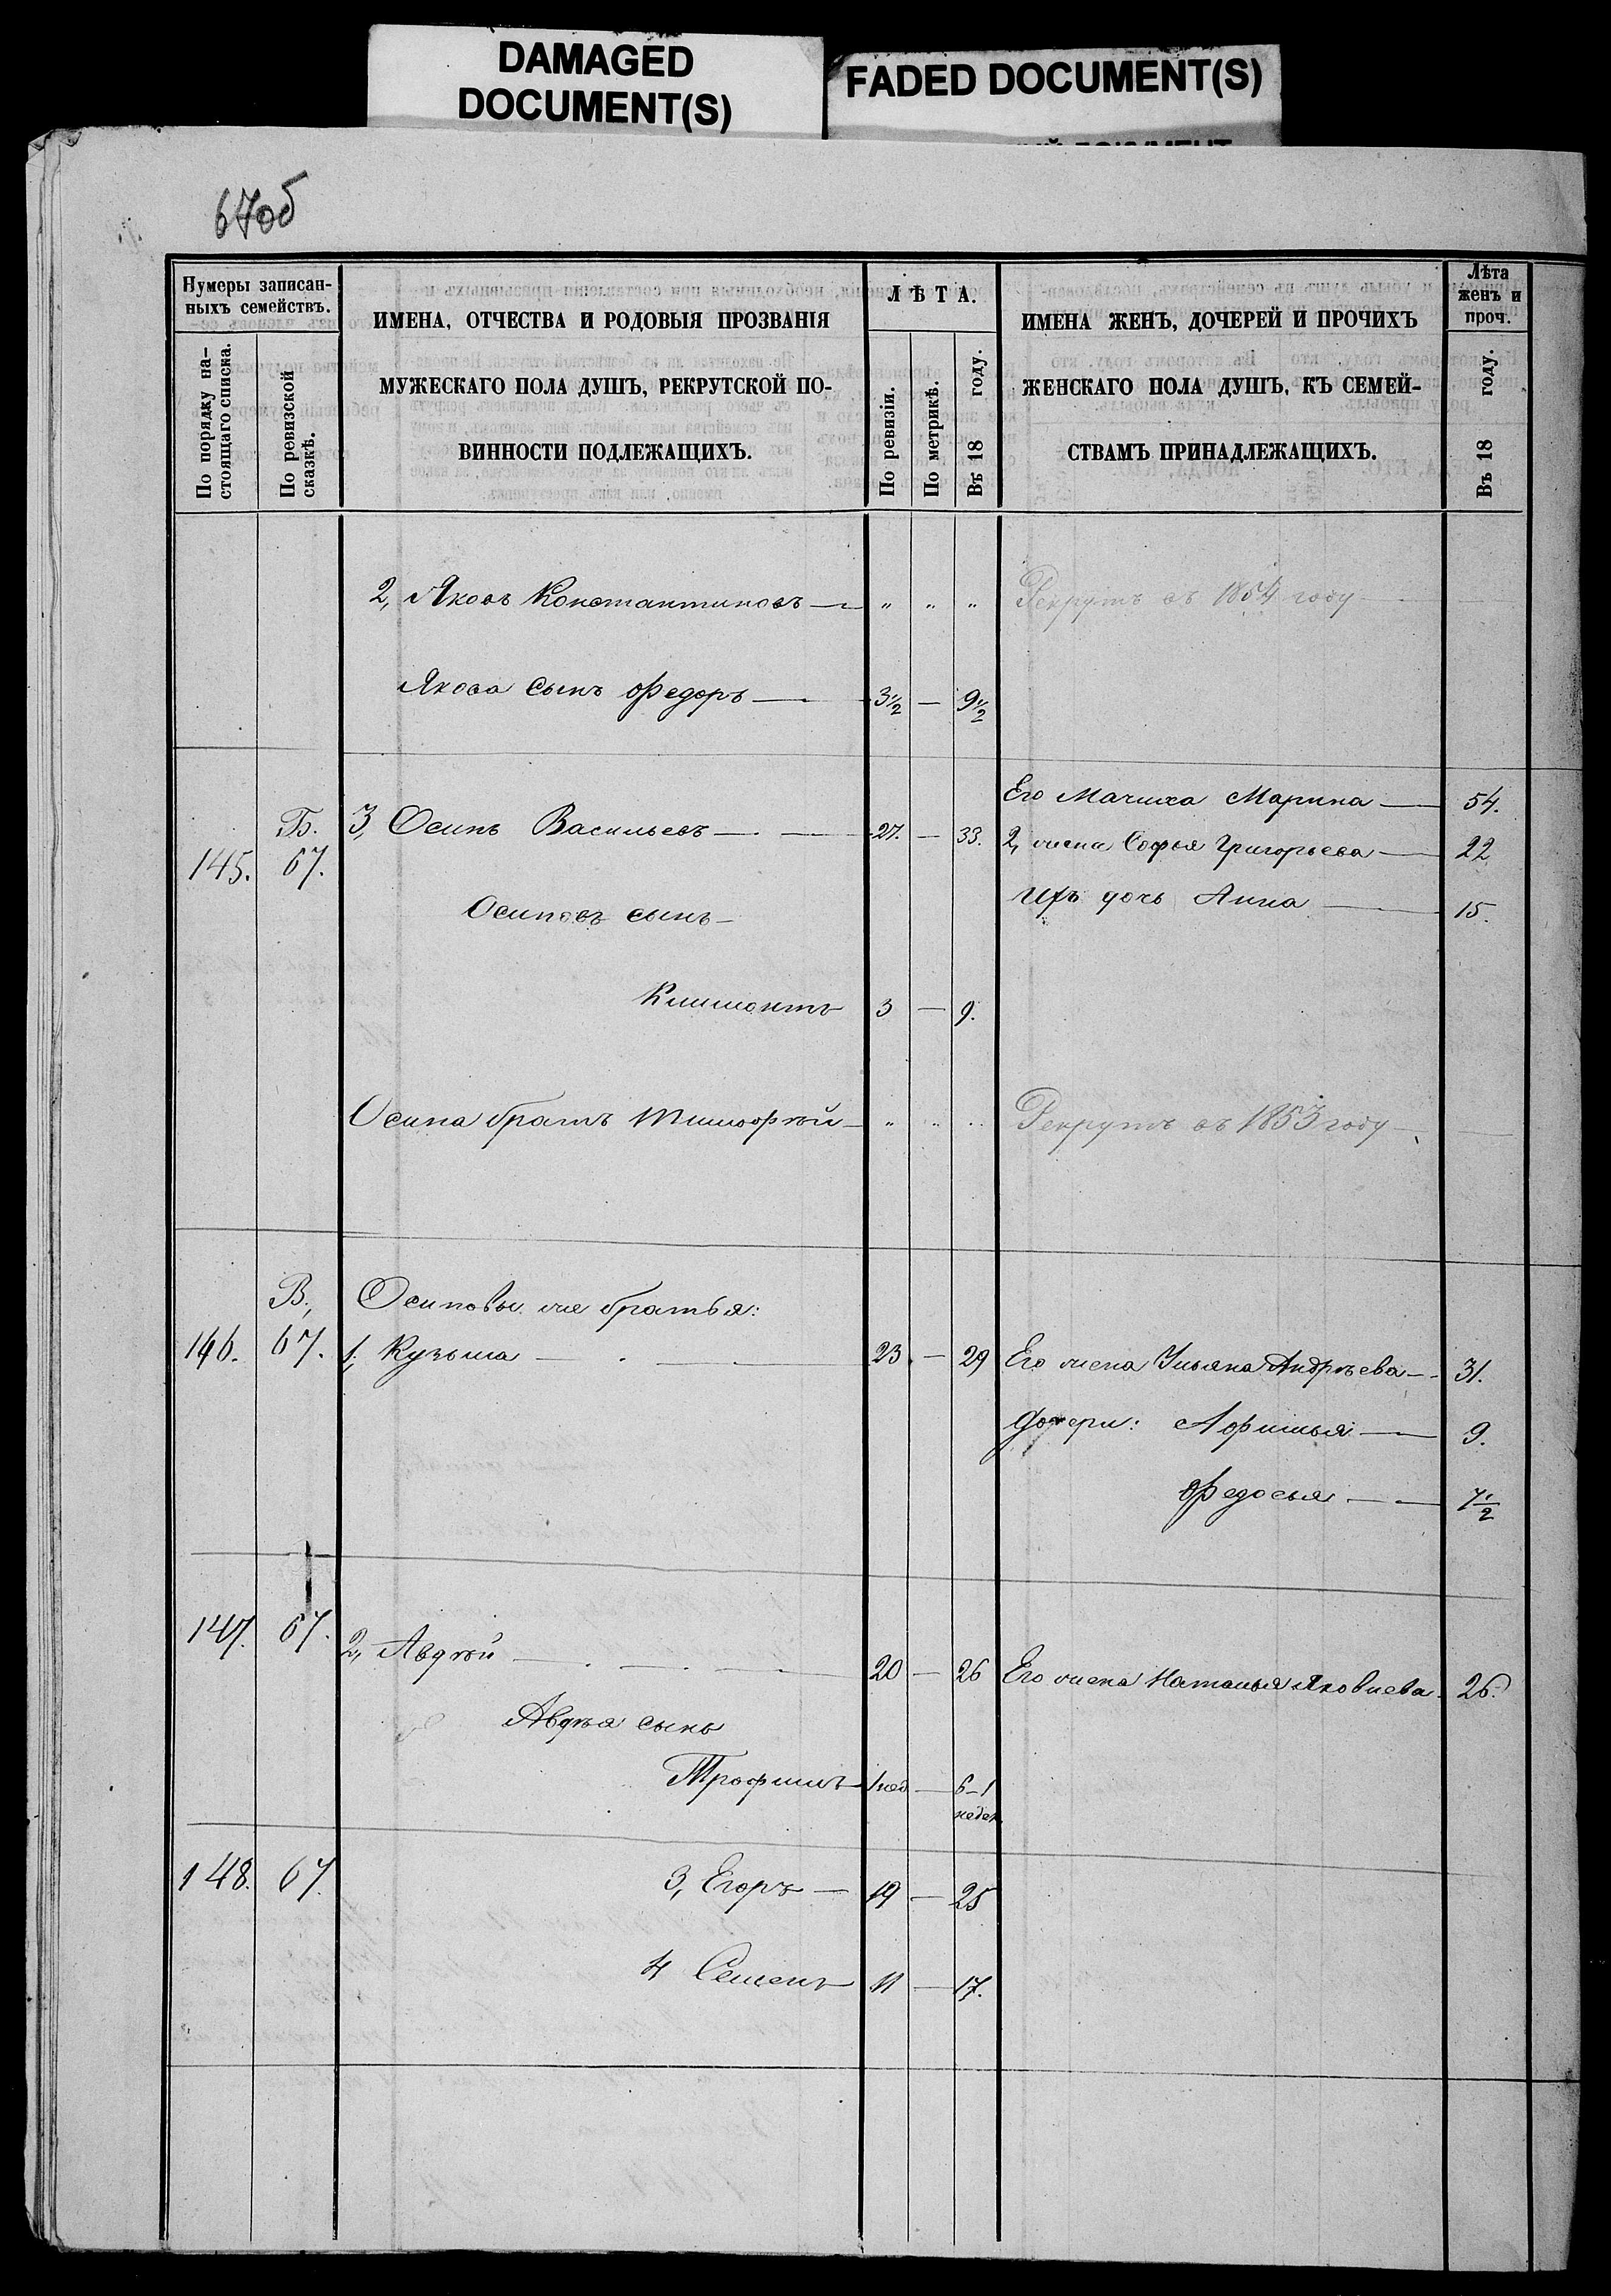 DAMAGED
DOCUMENT(S)
FADED DOCUMENT(S)
67об
Нумеры записан-
ныхъ семействъ.
По порядку на-
стоящаго списка.
По ревизской
сказкѣ.
ИМЕНА, ОТЧЕСТВА И РОДОВЫЯ ПРОЗВАНІЯ
МУЖЕСКАГО ПОЛА ДУШЪ, РЕКРУТСКОЙ ПО-
ВИННОСТИ ПОДЛЕЖАЩИХЪ.
ЛѢТА.
По ревизіи.
По метрикѣ.
Въ 18 году.
ИМЕНА ЖЕНЪ, ДОЧЕРЕЙ И ПРОЧИХЪ
ЖЕНСКАГО ПОЛА ДУШЪ, КЪ СЕМЕЙ-
СТВАМЪ ПРИНАДЛЕЖАЩИХЪ.
Лѣта
женъ и
проч.
Въ 18 году.
2, Яковъ Константиновъ — „ „ „ Рекрутъ въ 1854 году —
Якова сынъ Федоръ — 3½ — 9½
Его Мачиха Марина — 54.
Б. 3, Осипъ Васильевъ — 27. — 33. 2, жена Софья Григорьева — 22
145. 67.
Осиповъ сынъ — Ихъ дочь Анна — 15.
Климонтъ 3 — 9.
Осипа братъ Тимофѣй — „ „ „ Рекрутъ въ 1853 году —
В., Осиповы же братья:
146. 67. 1, Кузьма — 23 — 29 Его жена Ульяна Андрѣева — 31.
Дочери: Афимья — 9.
Федосья — 7½
147. 67. 2, Авдѣй — 20 — 26 Его жена Наталья Яковлева 26.
Авдѣя сынъ
Трофимъ 1 нед — 6-1
недел.
148. 67. 3, Егоръ — 19 — 25
4 Семенъ 11 — 17.